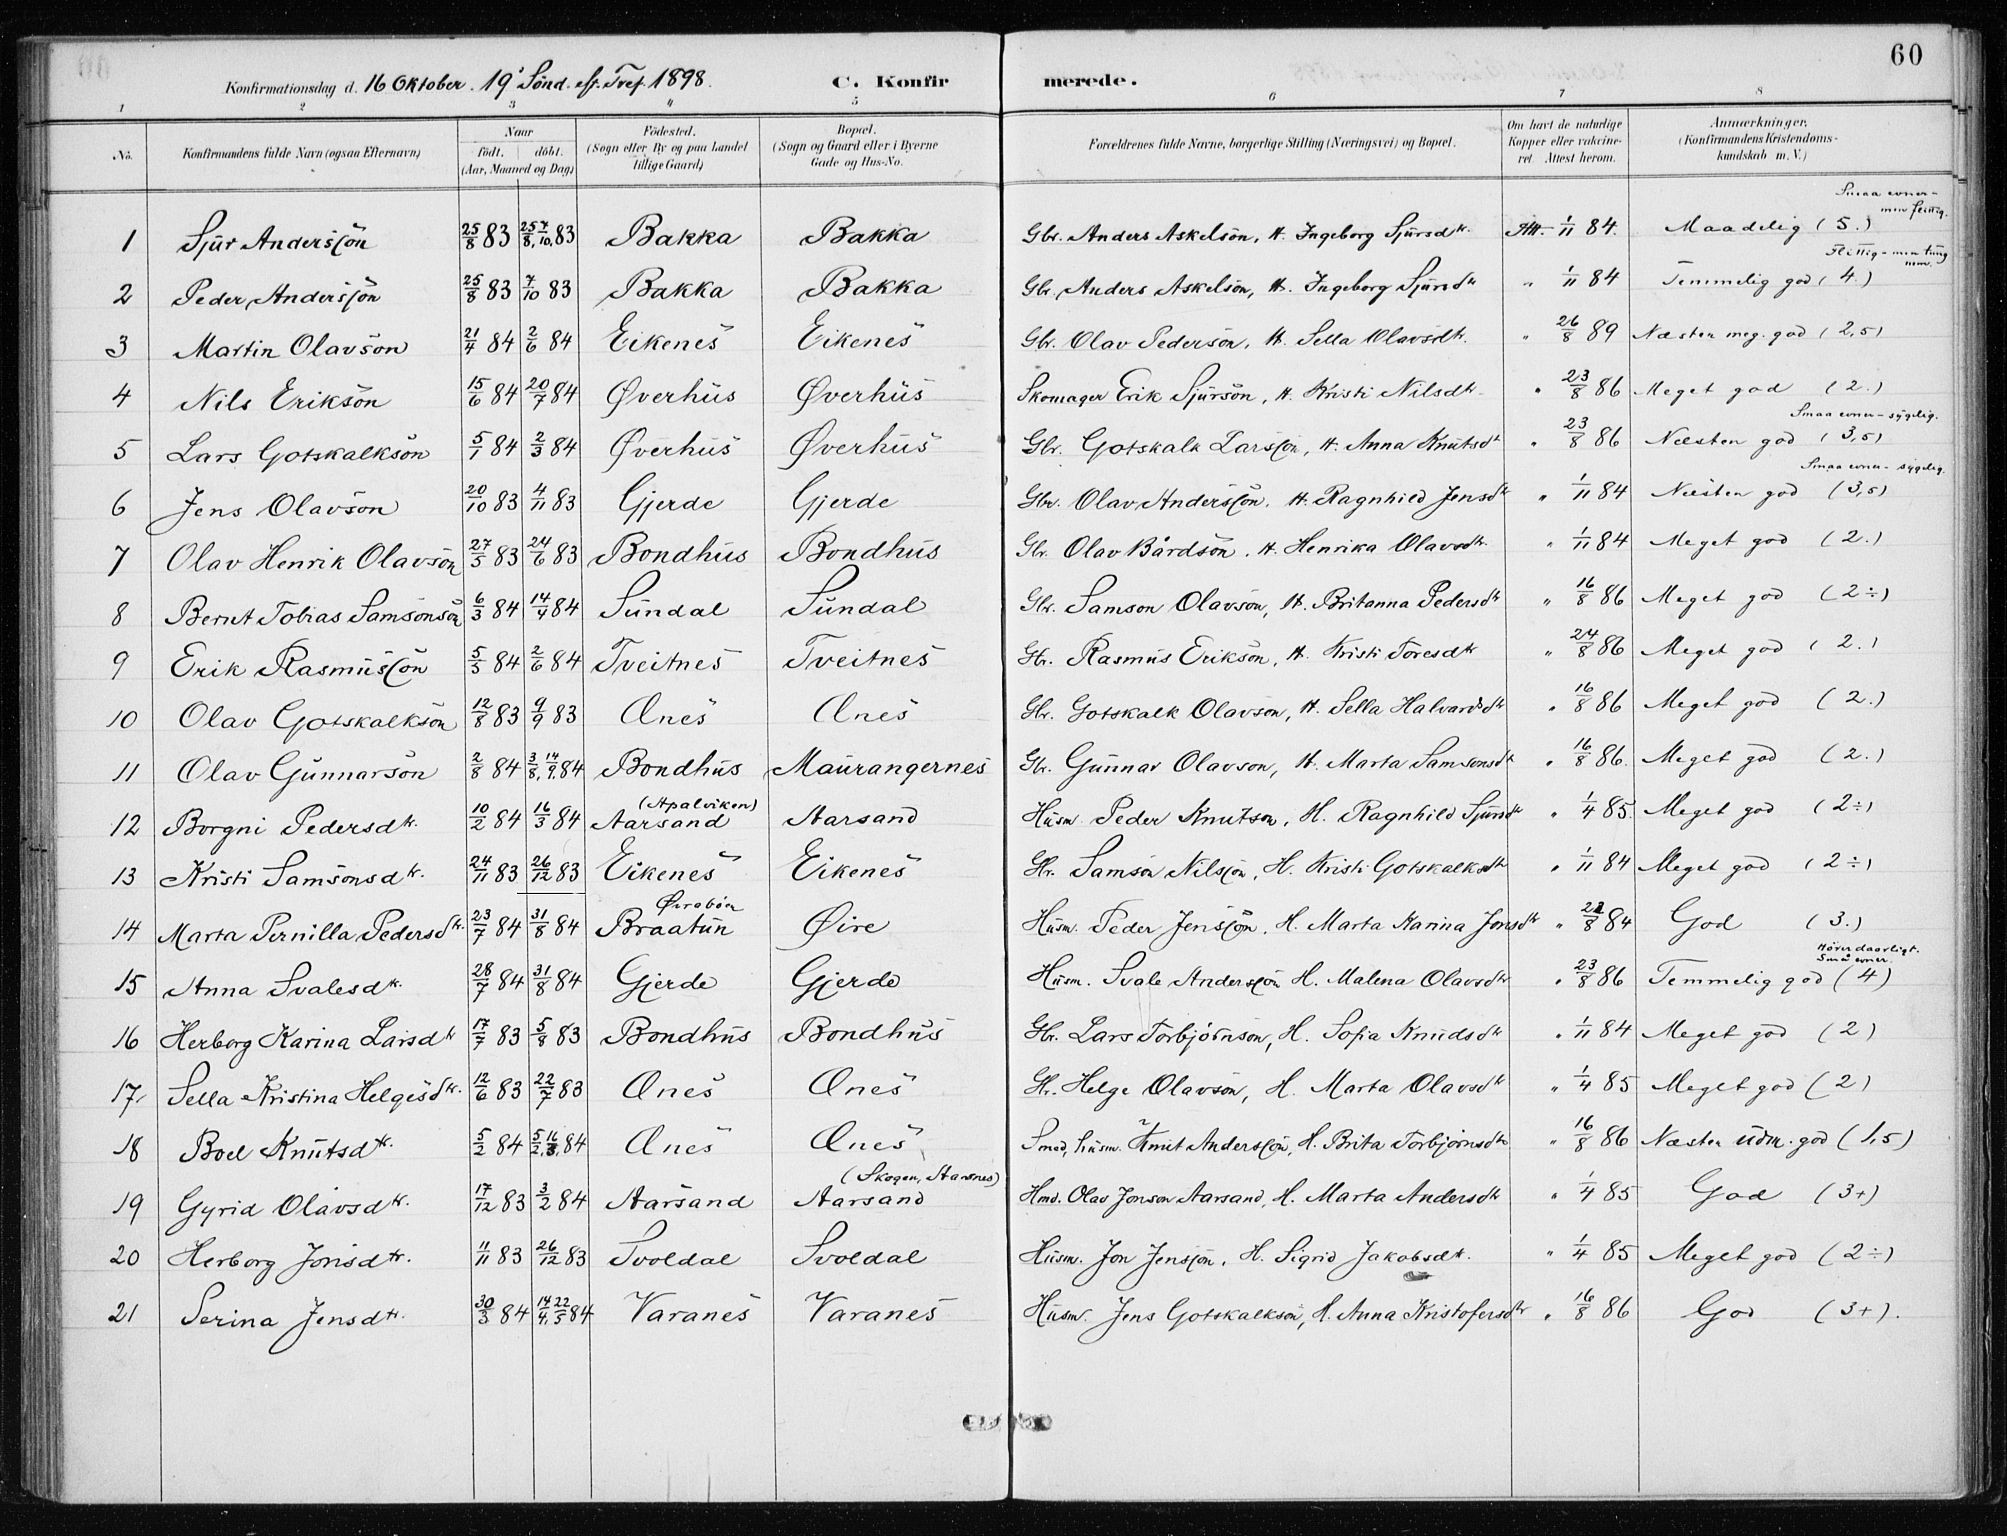 60
Konfirmationsdag d. 16 Oktober. 19' Sönd. eft. Tref. 1898. C. Konfirmerede.
1 2 3 4 5 6 7 8
No. Konfirmandens fulde Navn (ogsaa Efternavn) Naar født. døbt. (Aar, Maaned og Dag) Fødested. (Sogn eller By og paa Landet tillige Gaard) Bopæl. (Sogn og Gaard eller i Byerne Gade og Hus-No. Forældrenes fulde Navne, borgerlige Stilling (Næringsvei) og Bopæl. Om havt de naturlige Kopper eller vakcineret. Attest herom. Anmærkninger. (Konfirmandens Kristendomskundskab m. V.)
Smaa evner - men flittig.
1 Sjur Andersson 25/8 83 25/8, 7/10, 83 Bakka Bakka Gbr. Anders Askelsön, H. Ingeborg Sjursdtr. Att. 1/11 84. Maadelig (5.)
Flittig - men tung nem.
2 Peder Andersson 25/8 83 7/10 83 Bakka Bakka Gbr. Anders Askelsön, H. Ingeborg Sjursdtr " 1/11 84 Temmelig god (4.)
3 Martin Olavson 21/4 84 2/6 84 Eikenes Eikenes Gbr. Olav Pederson, H. Sella Olavsdtr. " 26/8 89 Næsten meg. god (2,5)
4 Nils Erikson 15/6 84 20/7 84 Øverhus Øverhus Skomager Erik Sjurson, H. Kristi Nilsdtr. " 23/8 86 Meget god (2.)
Smaa evner - sygelig.
5 Lars Gotskalkson 5/1 84 2/3 84 Øverhus Øverhus Gbr. Gotskalk Larsson, H. Anna Knutsdtr " 23/8 86 Næsten god (3,5)
Smaa evner - sygelig.
6 Jens Olavson 20/10 83 4/11 83 Gjerde Gjerde Gbr. Olav Andersson. H. Ragnhild Jensdtr " 1/11 84 Næsten god (3,5)
7 Olav Henrik Olavson 27/5 83 24/6 83 Bondhus Bondhus Gbr. Olav Bårdson. H. Henrika Olavsdtr. " 1/11 84 Meget god (2.)
8 Bernt Tobias Samsonson 6/3 84 14/4 84 Sundal Sundal Gbr. Samson Olavson, H. Britanna Pedersdtr " 16/8 86 Meget god (2÷)
9 Erik Rasmusson 5/5 84 2/6 84 Tveitnes Tveitnes Gbr. Rasmus Erikson, H. Kristi Toresdtr " 24/8 86 Meget god (2.)
10 Olav Gotskalkson 12/8 83 9/9 83 Ænes Ænes Gbr. Gotskalk Olavson, H. Sella Halvardsdtr " 16/8 86 Meget god (2.)
11 Olav Gunnarson 2/8 84 3/8, 14/9, 84 Bondhus Maurangernes Gbr. Gunnar Olavson, H. Marta Samsonsdtr " 16/8 86. Meget god (2.)
(Apalviken)
12 Borgni Pedersdtr. 10/2 84 16/3 84 Aarsand Aarsand Husm. Peder Knutson, H. Ragnhild Sjursdtr " 1/4 85. Meget god (2÷)
13 Kristi Samsonsdtr. 24/11 83 26/12 83 Eikenes Eikenes Gbr. Samson Nilsson, H. Kristi Gotskalksdtr " 1/11 84 Meget god (2÷)
14 Marta Pernilla Pedersdtr. 23/7 84 31/8 84 Braatun Øire Husm. Peder Jensson, H. Marta Karina Jonsdtr " /8 84 God (3.)
Hører daarligt. Små evner.
15 Anna Svalesdtr. 28/7 84 31/8 84 Gjerde Gjerde Husm. Svale Andersson H. Malena Olavsdtr " 23/8 86 Temmelig god (4)
16 Herborg Karina Larsdtr 17/7 83 5/8 83 Bondhus Bondhus Gbr. Lars Torbjörnson, H. Sofia Knudsdtr " 1/11 84 Meget god (2)
17. Sella Kristina Helgesdtr. 12/6 83 22/7 83 Ænes Ænes Gbr. Helge Olavson, H. Marta Olavsdtr " 1/4 85 Meget god (2)
18 Boel Knutsdtr. 5/2 84 5/2, 16/3, 84 Ænes Ænes Smed, husm. Knut Andersson, H. Brita Torbjörnsdtr " 16/8 86 Næsten udm. god (1,5)
(Skogen, Aarsnes)
19 Gyrid Olavsdtr. 17/12 83 3/2 84 Aarsand Aarsand Hmd. Olav Jonson Aarsand, H. Marta Andersdtr " 1/4 85 God (3+)
20 Herborg Jonsdtr. 11/11 83 26/12 83 Svoldal Svoldal Husm. Jon Jensson, H. Sigrid Jakobsdtr. " 1/4 85 Meget god (2÷)
21 Serina Jensdtr. 30/3 84 14/4, 22/5 84 Varanes Varanes Husm. Jens Gotskalkson, H. Anna Kristofersdtr " 16/8 86 God (3+).